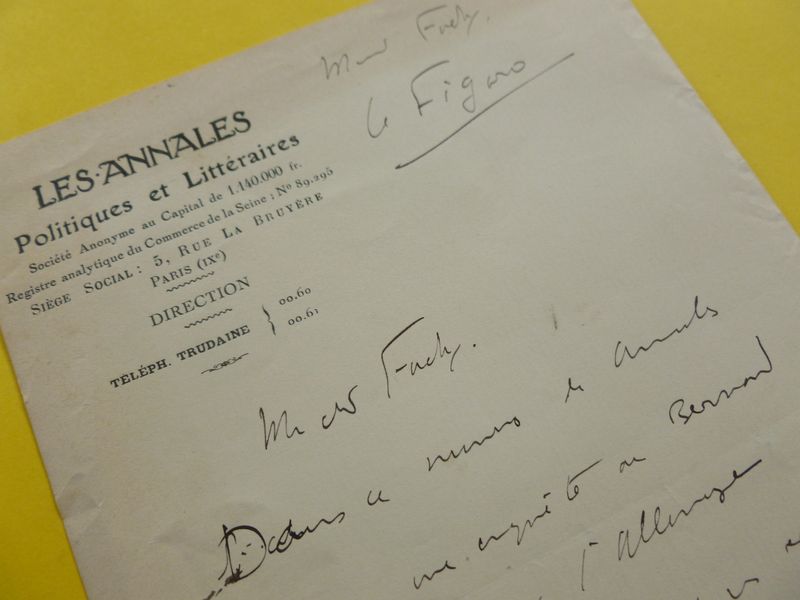 LES·ANNALES
Politiques et Littéraires
Société Anonyme au Capital de 1.140.000 fr.
Registre analytique du Commerce de la Seine : Nº 89.295
SIÈGE SOCIAL : 5, RUE LA BRUYÈRE
PARIS (IXe)
DIRECTION
TÉLÉPH. TRUDAINE } 00.60
00.61
Le Figaro
Dans ce numéro des Annales
une enquête de Bernard
l'Allemagne